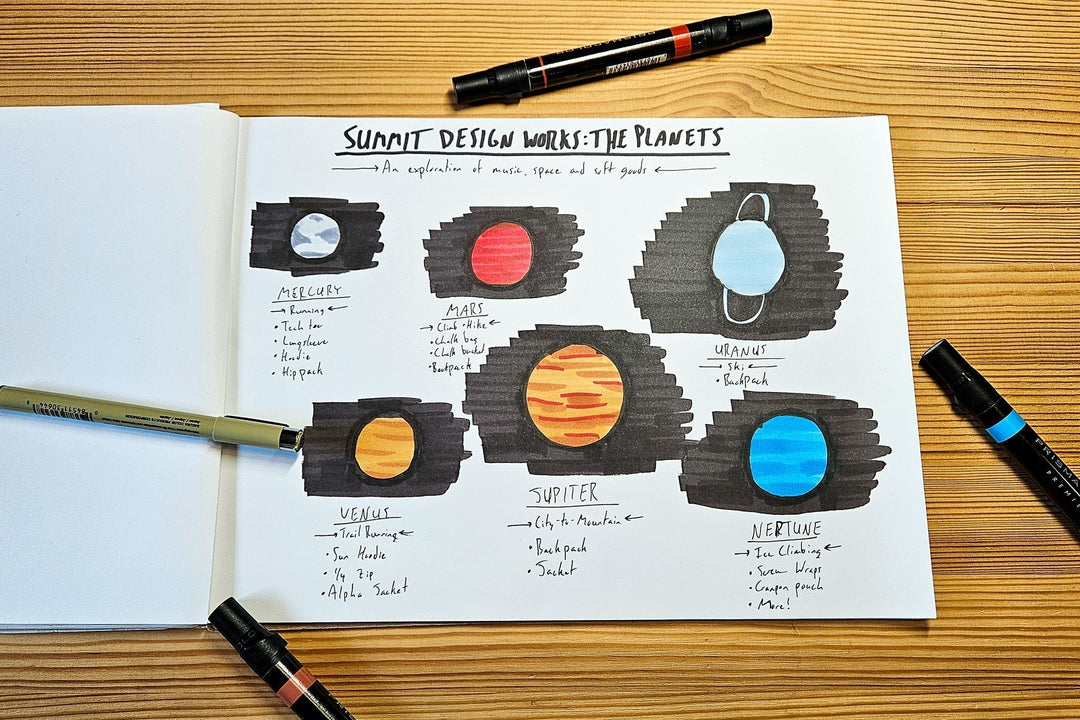 SUMMIT DESIGN WORKS: THE PLANETS
→ An exploration of music, space and soft goods ←
MERCURY
→ Running ←
• Tech tee
• Longsleeve
• Hoodie
• Hip pack
MARS
→ Climb + Hike ←
• Chalk bag
• Chalk bucket
• Backpack
URANUS
→ Ski ←
• Backpack
VENUS
→ Trail Running ←
• Sun Hoodie
• 1/4 Zip
• Alpha Jacket
JUPITER
→ City-to-Mountain ←
• Backpack
• Jacket
NEPTUNE
→ Ice Climbing ←
• Screw Wraps
• Crampon pouch
• More!
PRISMA
PREMI